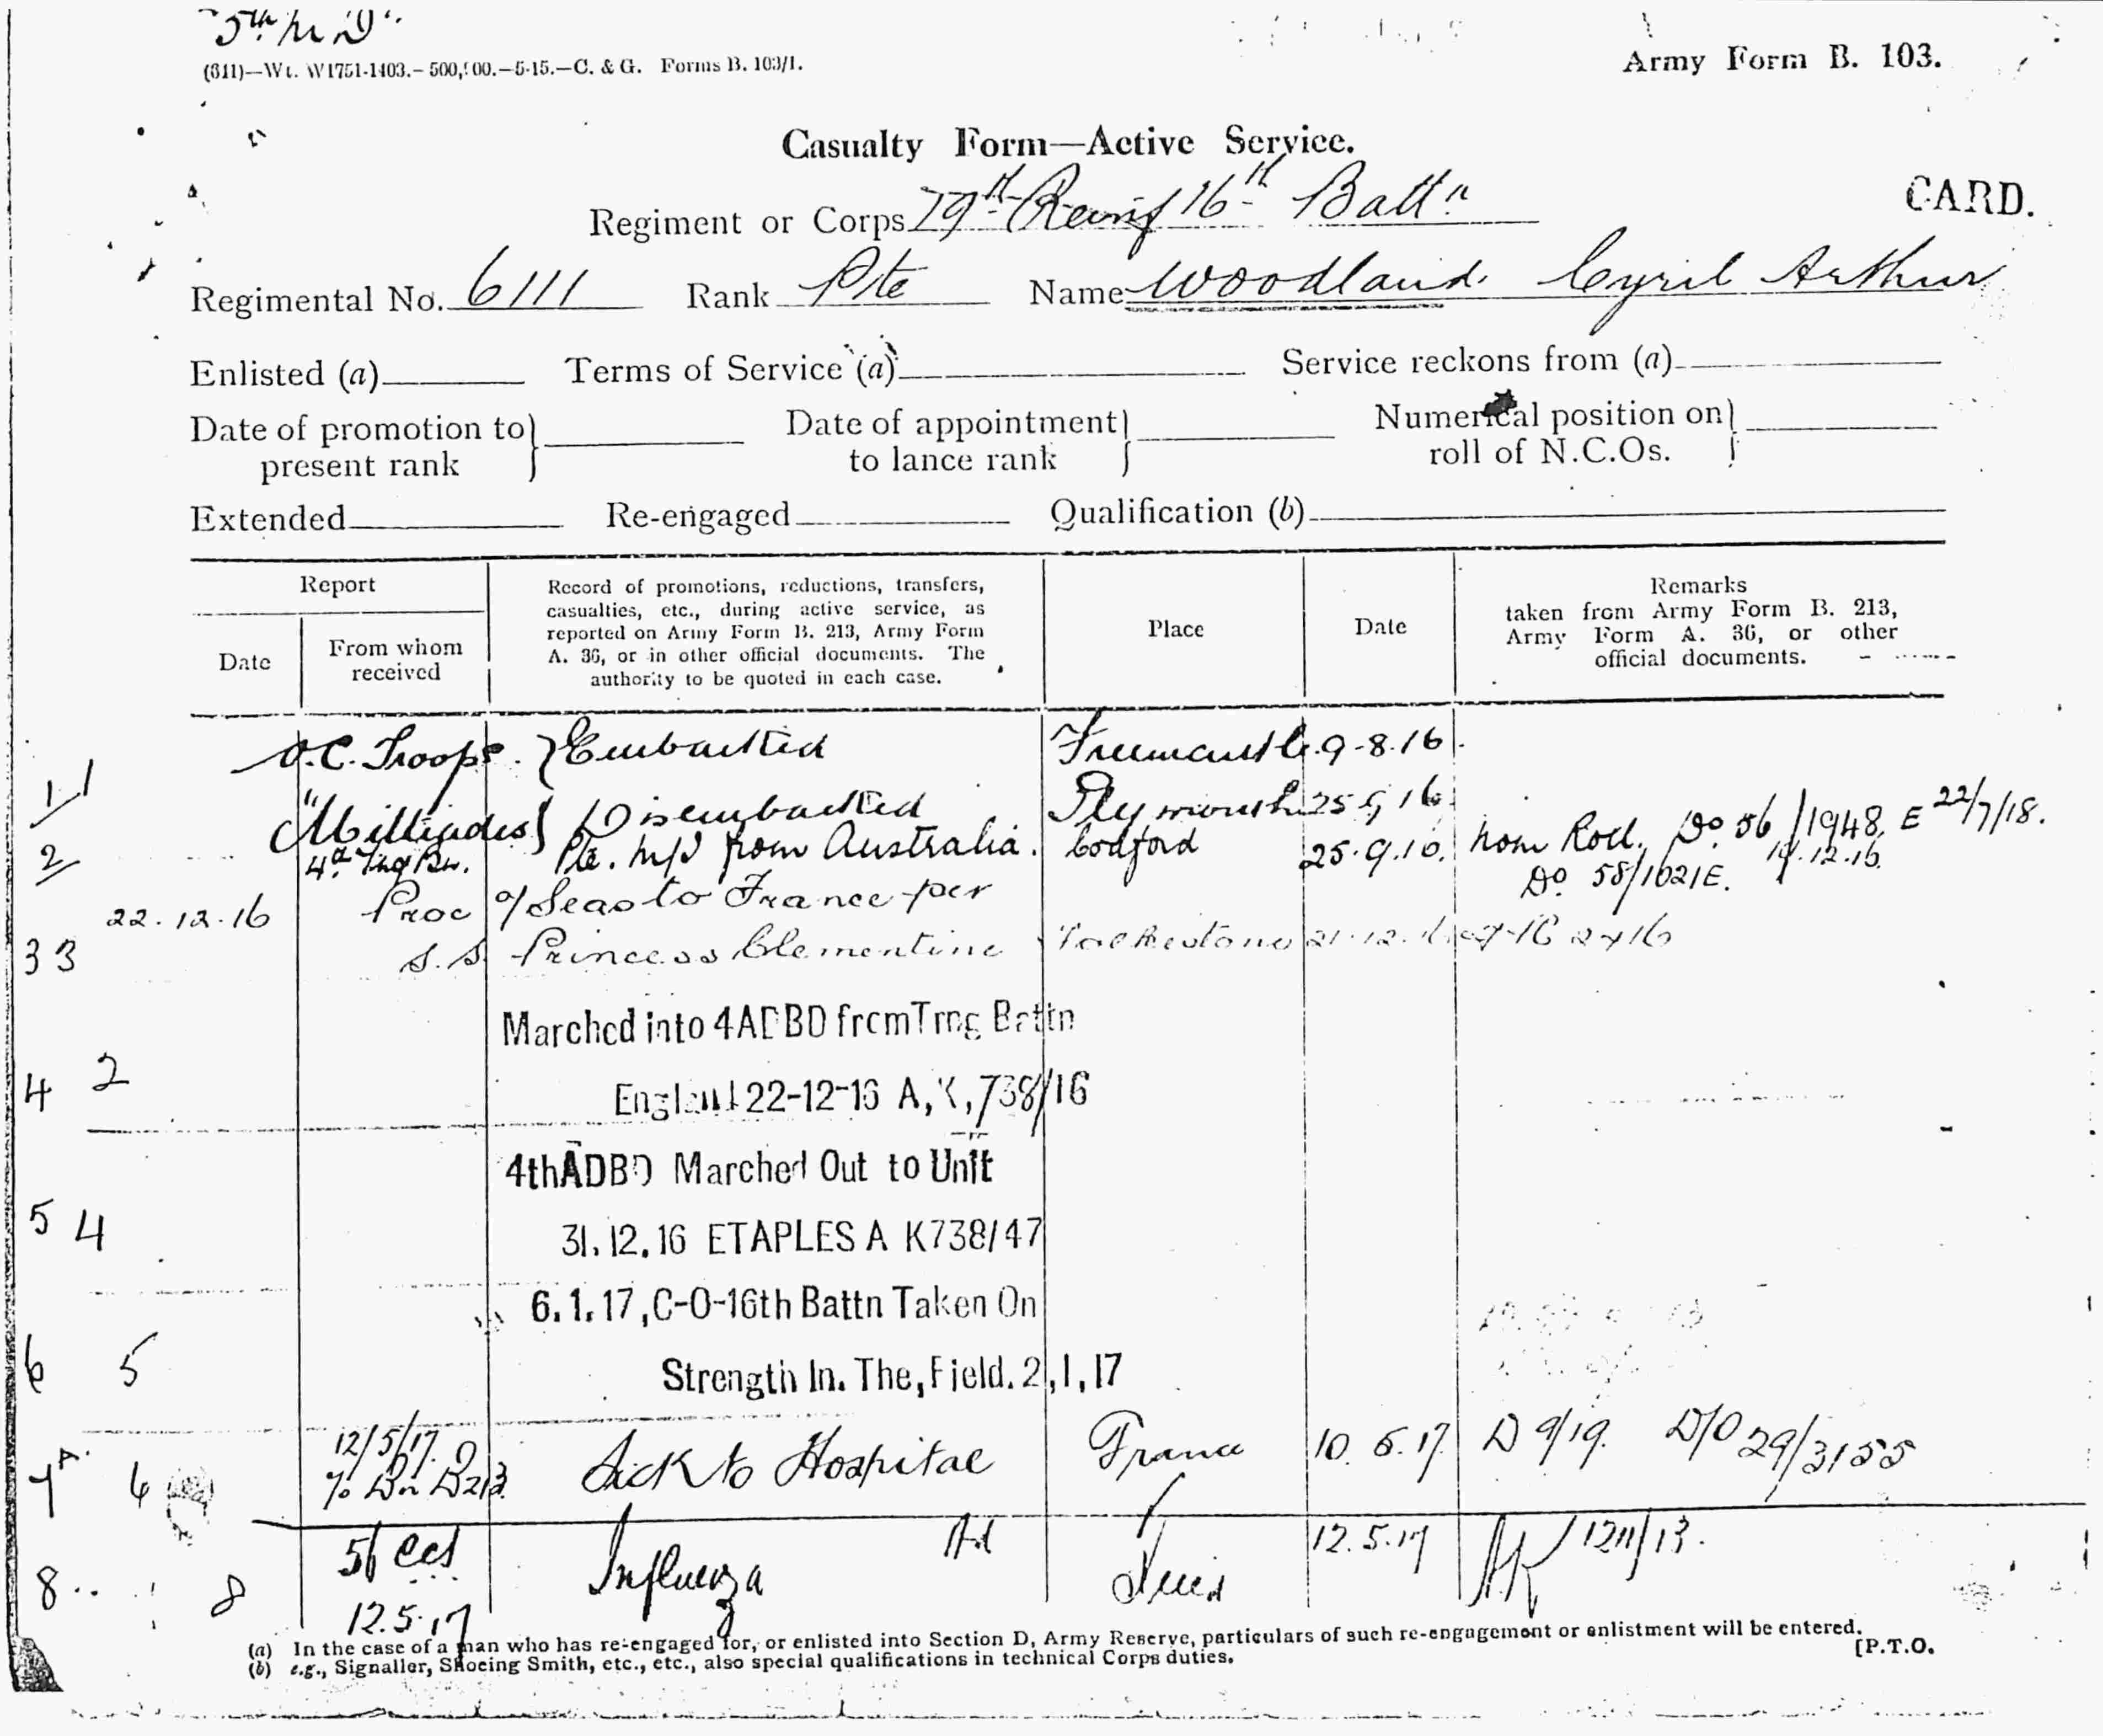 "5th M.D".
(611)—Wt. W1751-1403.— 500,000.—5-15.—C. & G. Forms B. 103/1.
Army Form B. 103.
Casualty Form—Active Service.
CARD.
Regiment or Corps 19th Reinf 16th Battn
Regimental No. 6111 Rank Pte Name Woodland Cyril Arthur
Enlisted (a) Terms of Service (a) Service reckons from (a)
Date of promotion to present rank } Date of appointment to lance rank } Numerical position on roll of N.C.Os. }
Extended Re-engaged Qualification (b)
Report
Date
From whom received
Record of promotions, reductions, transfers,
casualties, etc., during active service, as
reported on Army Form B. 213, Army Form
A. 36, or in other official documents. The
authority to be quoted in each case.
Place
Date
Remarks
taken from Army Form B. 213,
Army Form A. 36, or other
official documents.
O.C. Troops. } Embarked Fremantle. 9-8.16
1 1
"Miltiades } Disembarked Plymouth 25 9 16
2 4th Trg Bn. Pte. M/I from Australia. Codford 25.9.16. Nom Roll. Do 56/1948. E 22/7/18.
Do 58/1621E. 12.16.
22.12.16 Proc o/Seas to France per
3 3 S.S. Princess Clementine Folkestone 21.12.
Marched into 4ADBD from Trng Battn
4 2 England 22-12-16 A,K,738/16
4thADBD Marched Out to Unit
5 4 31.12.16 ETAPLES A K738/47
6.1.17,C-O-16th Battn Taken On
6 5 Strength In. The, Field. 2,1,17
12/5/17. Sick to Hospital France 10.5.17. D 9/19. D/O 29/3155
7A. 6 Bn B213.
8.. 8 56 CCS Influenza Ad 12.5.17 AK 1211/13.
12.5.17
(a) In the case of a man who has re-engaged for, or enlisted into Section D, Army Reserve, particulars of such re-engagement or enlistment will be entered.
(b) e.g., Signaller, Shoeing Smith, etc., etc., also special qualifications in technical Corps duties.
[P.T.O.